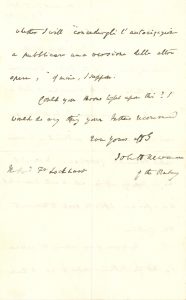 whether I will "concedergli l'autorizzazione
a pubblicare una versione delle altre
opere," of mine, I suppose.
Could you throw light upon this? I
would do any thing your Fathers recommend
Ever Yours affly
John H Newman
of the Oratory
Fr Lockhart